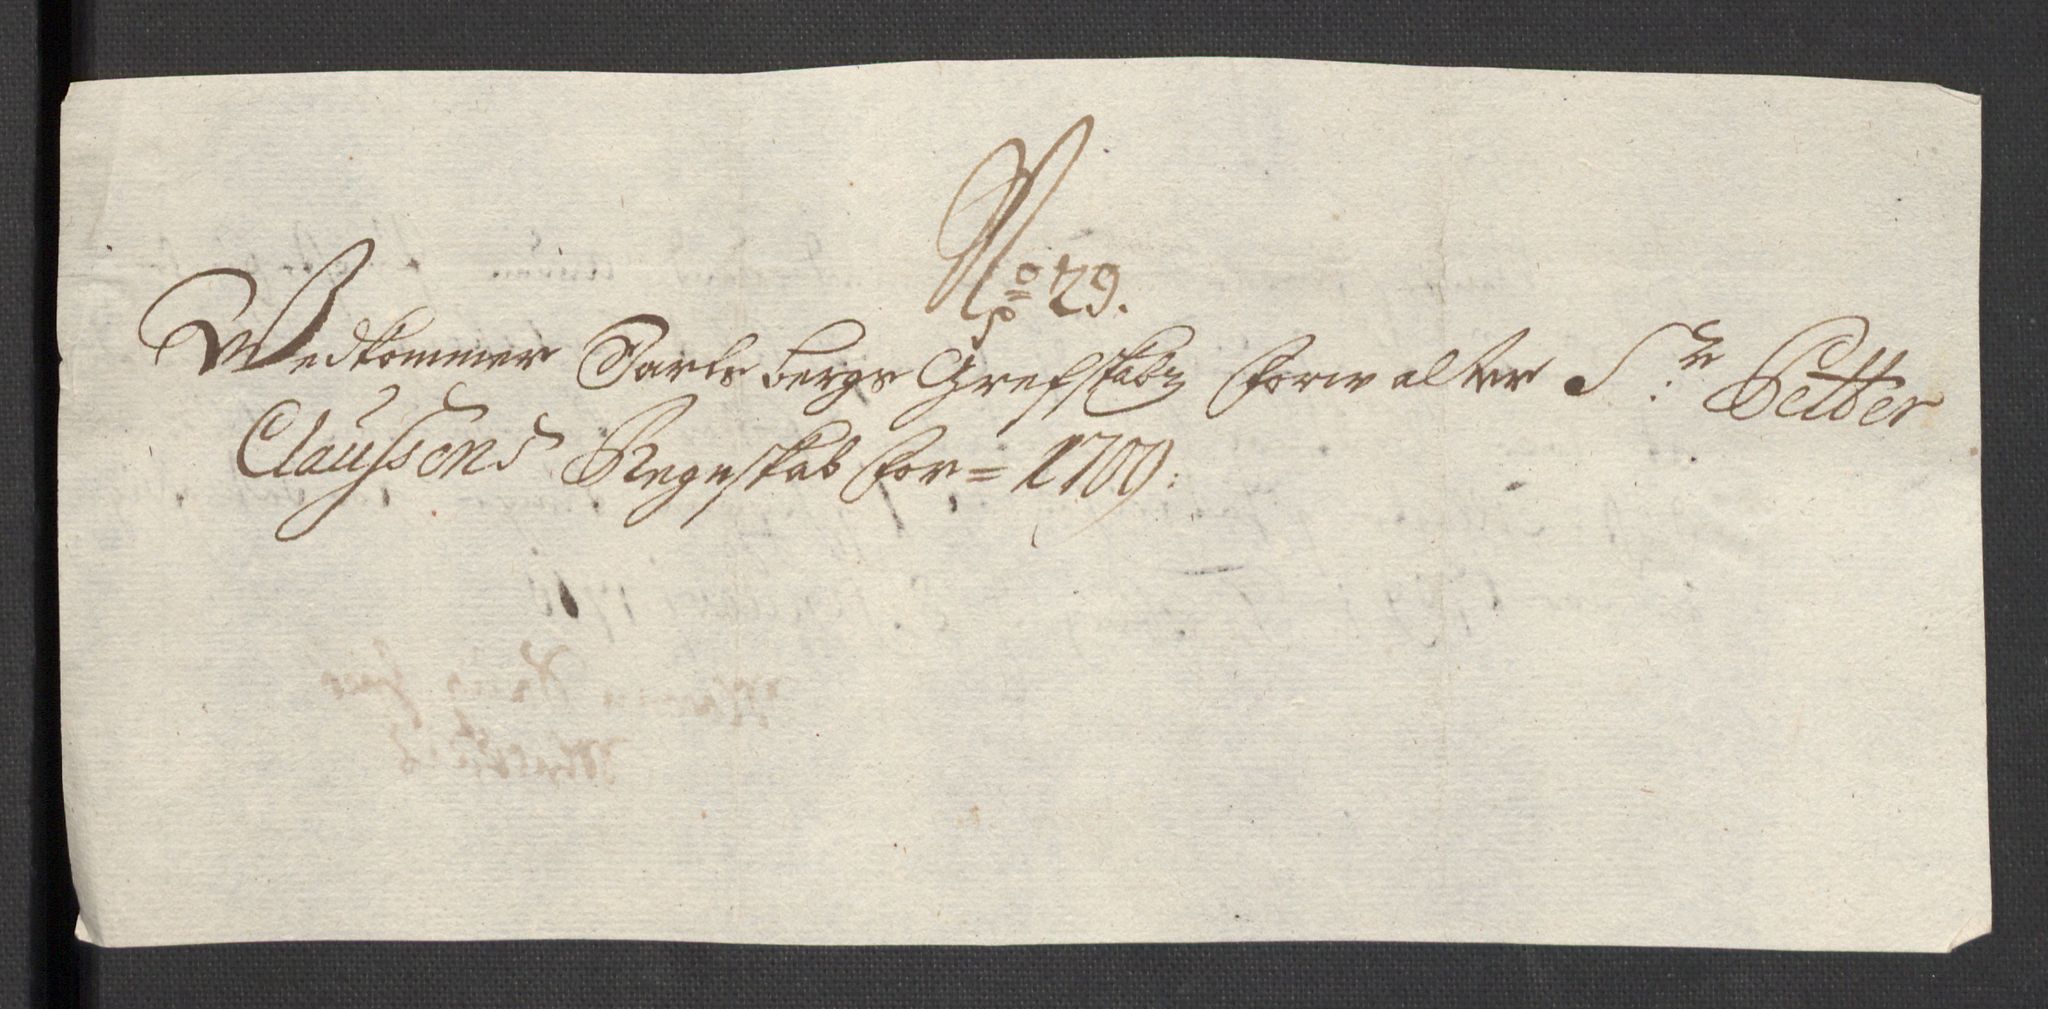 No 29.
Vedkommer Jarlsbergs Grefskabs Forwalter Sr. Petter
Claussens Regnskab for = 1709: